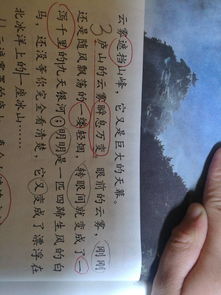 云雾遮挡山峰，它又是巨大的天幕。
3 庐山的云雾瞬息万变。眼前的云雾，刚刚
还是随风飘荡的一缕轻烟，转眼间就变成了一
泻千里的九天银河；明明是一匹四蹄生风的白
马，还没等你完全看清楚，它又变成了漂浮在
北冰洋上的一座冰山……